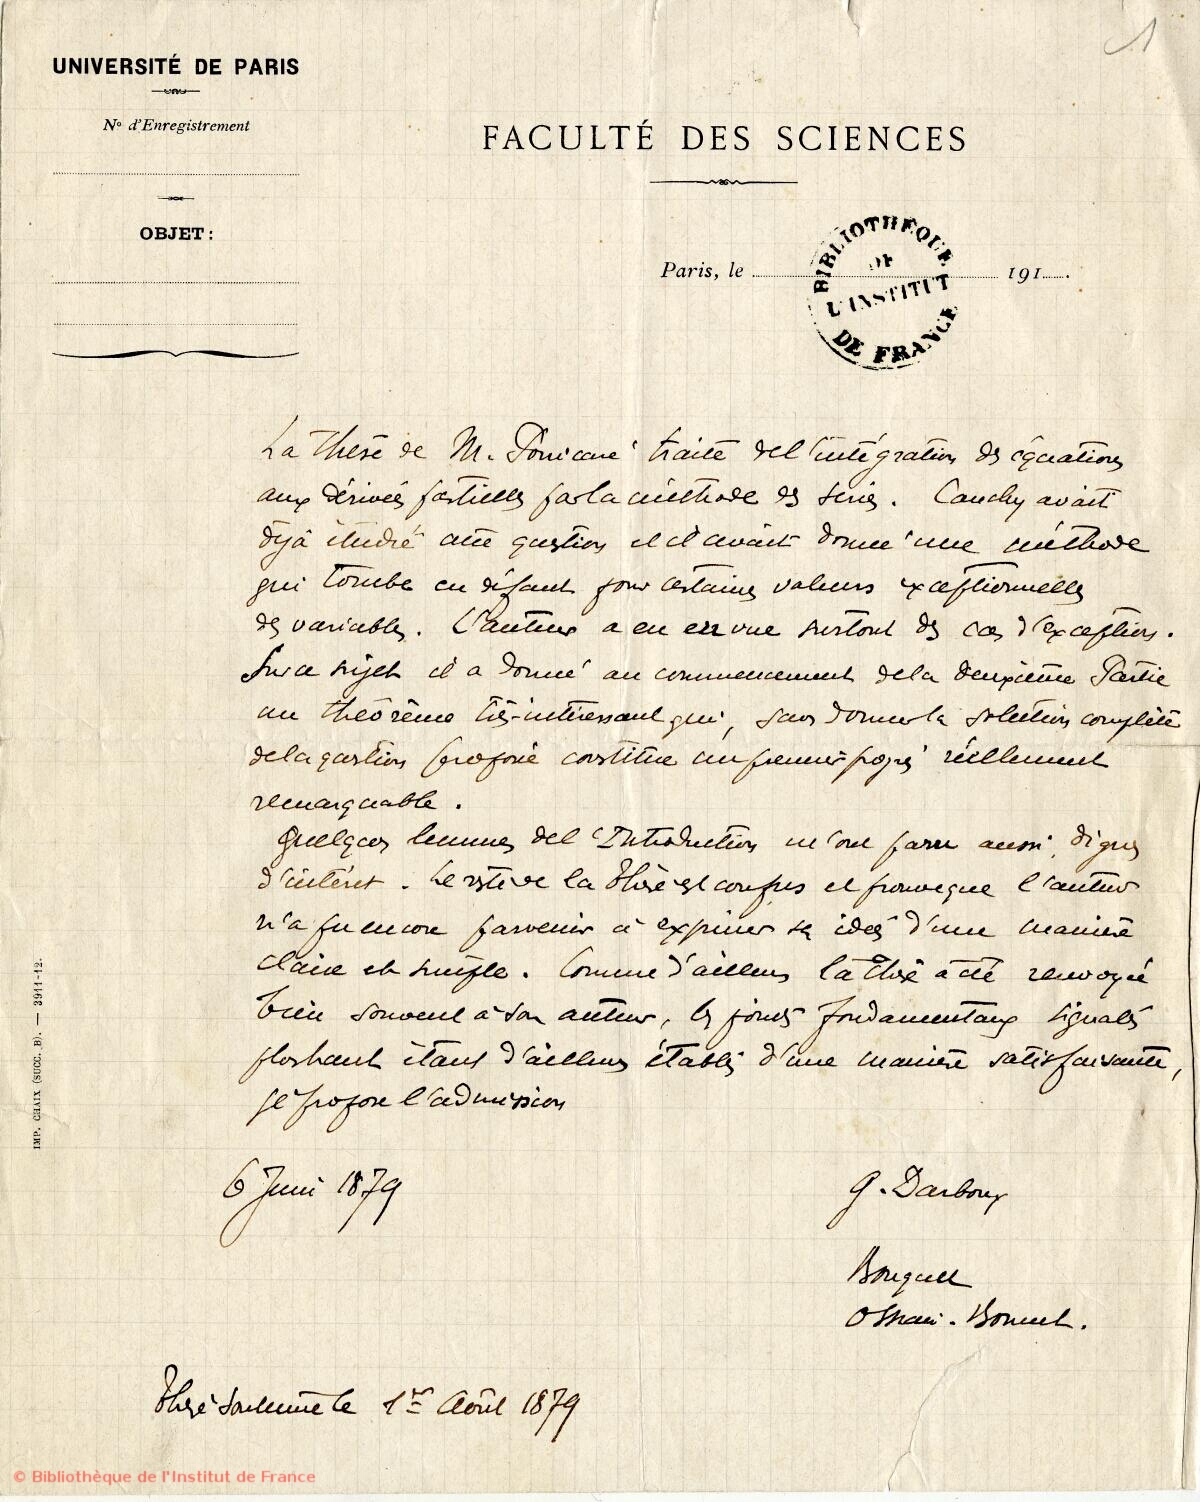 1
UNIVERSITÉ DE PARIS
No d'Enregistrement
FACULTÉ DES SCIENCES
OBJET:
BIBLIOTHÈQUE
DE
L'INSTITUT
DE FRANCE
Paris, le 191
La thèse de M. Poincaré traite de l'intégration des équations
aux dérivées partielles par la méthode des séries. Cauchy avait
déjà étudié cette question et il avait donné une méthode
qui tombe en défaut pour certaines valeurs exceptionnelles
des variables. L'auteur a eu en vue surtout des cas d'exception.
Sur ce sujet il a donné au commencement de la deuxième Partie
un théorème très-intéressant qui, sans donner la solution complète
de la question proposée constitue un premier progrès réellement
remarquable.
Quelques lemmes de l'Introduction m'ont paru aussi dignes
d'intérêt. Le reste de la thèse est confus et prouve que l'auteur
n'a pu encore parvenir à exprimer ses idées d'une manière
claire et simple. Comme d'ailleurs la thèse a été renvoyée
bien souvent à son auteur, les points fondamentaux signalés
plus haut étant d'ailleurs établis d'une manière satisfaisante,
je propose l'admission
6 Juin 1879
G. Darboux
Bouquet
Ossian. Bonnet.
Thèse soutenue le 1er Août 1879
IMP. CHAIX (SUCC. B). — 3911-12.
© Bibliothèque de l'Institut de France